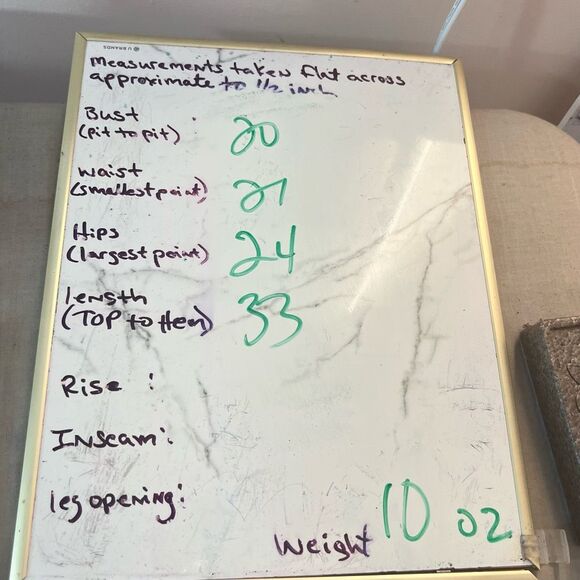 U BRANDS
Measurements taken flat across
approximate to 1/2 inch
Bust
(pit to pit)
20
waist
(smallest point)
21
Hips
(largest point)
24
length
(TOP to Hem)
33
Rise :
Inseam:
leg opening:
Weight 10 oz